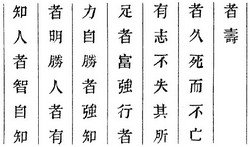 知人者智自知
者明勝人者有
力自勝者強知
足者富強行者
有志不失其所
者久死而不亡
者壽